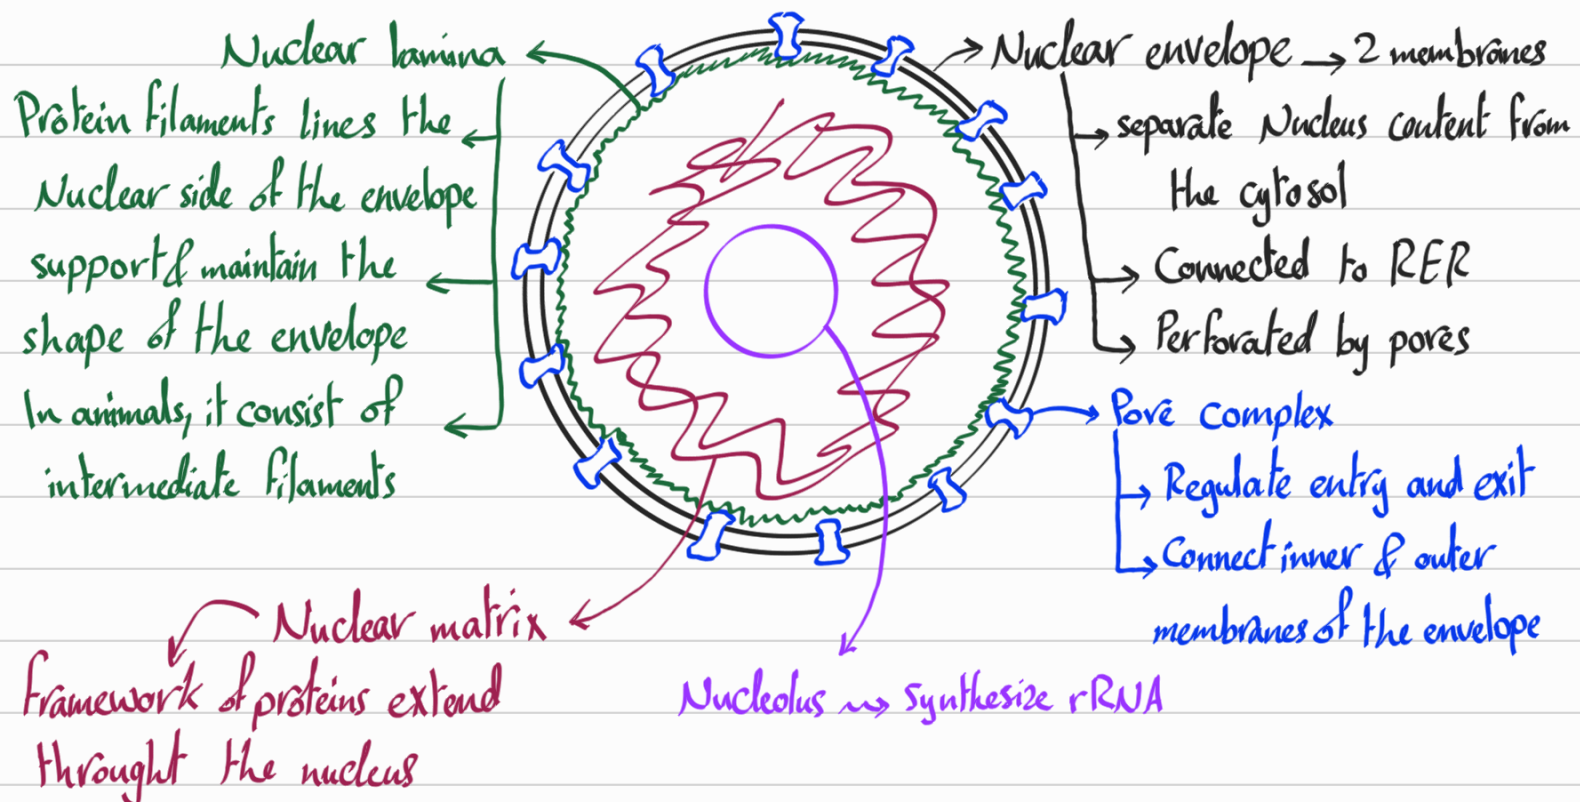 Nuclear lamina
Protein filaments lines the
Nuclear side of the envelope
support & maintain the
shape of the envelope
In animals, it consist of
intermediate filaments
Nuclear envelope → 2 membranes
separate Nucleus content from
the cytosol
Connected to RER
Perforated by pores
Pore complex
Regulate entry and exit
Connect inner & outer
membranes of the envelope
Nuclear matrix
framework of proteins extend
throught the nucleus
Nucleolus → synthesize rRNA